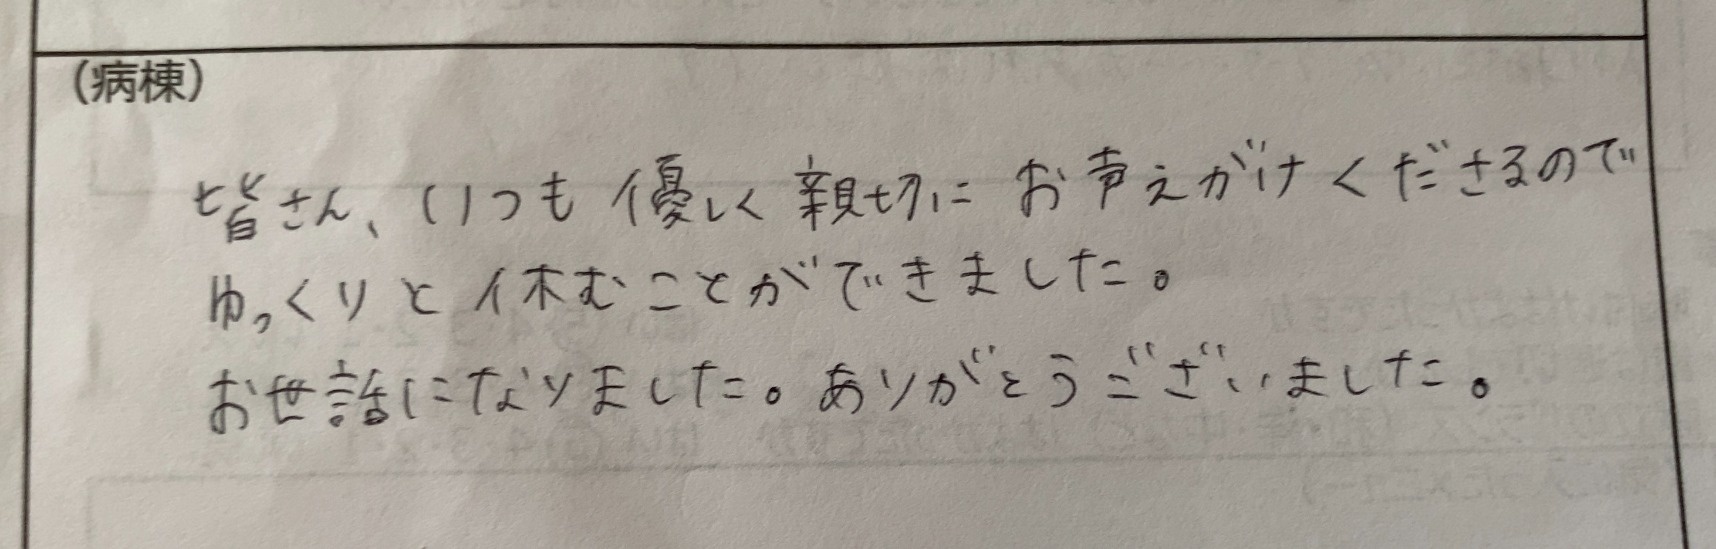 （病棟）
皆さん、いつも優しく親切にお声えがけくださるので
ゆっくりと休むことができました。
お世話になりました。ありがとうございました。